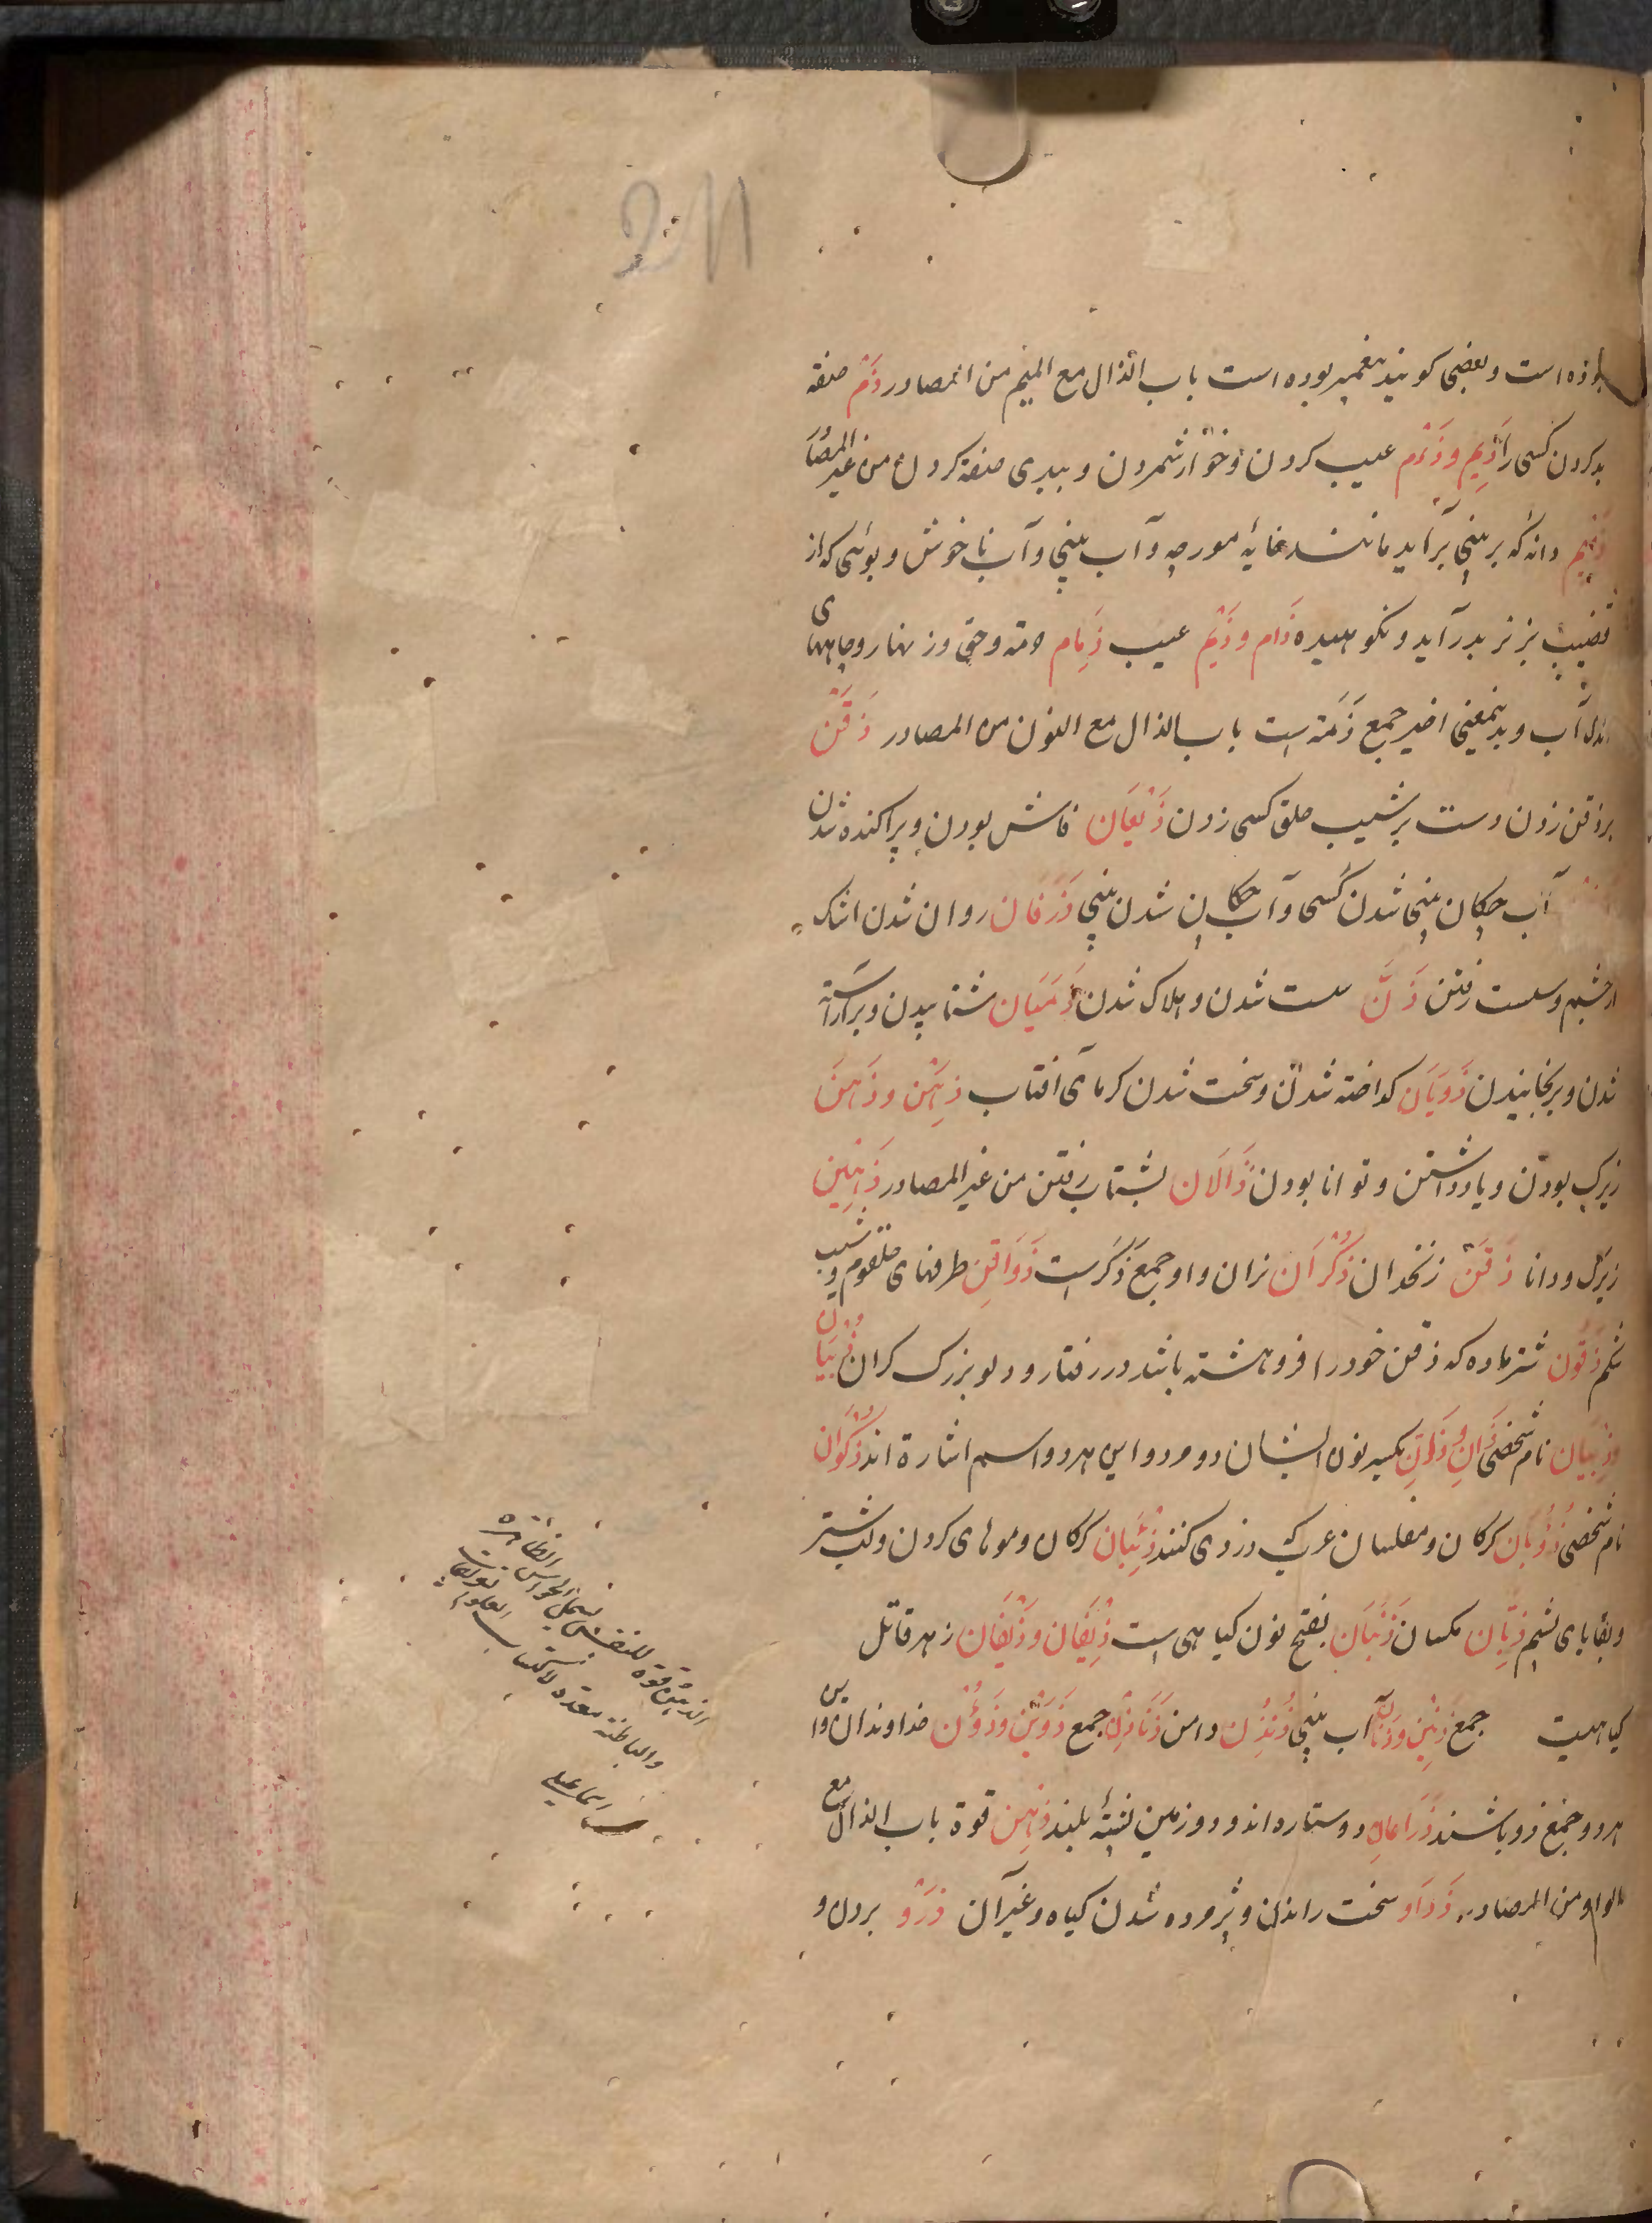 211
بوذه است و بعضی کویند پیغمبر بوده است باب الذال مع المیم من المصادر ذَمّ صفة
بد کردن کسی را ذَیم و ذَءْم عیب کردن و خوار شمردن و ببدی صفة کردن من غیر المصا
ذمیم دانه که بر بینی برآید مانند خایهٔ مورچه و آب بینی و آب ناخوش و بوئی که از
قضیب بز نر بدر آید و نکوهیده ذَام و ذَیْم عیب ذِمام ذمّه و حق و زنهار و چاههای
اندک آب و بدینمعنی اخیر جمع ذَمّة است باب الذال مع النون من المصادر ذَقْن
بر ذقن زدن دست بر شیب حلق کسی زدن ذَیَعَان فاش بودن و پراکنده شدن
آب چکان بینی شدن کسی و آب چکان شدن بینی ذَرَفان روان شدن اشک
از چشم و سست رفتن سست شدن و هلاک شدن ذَمَیَان شتابیدن و برآراسته
شدن و برنجانیدن ذَوَبَان کداخته شدن و سخت شدن کرمای آفتاب ذِهْن و ذَهَن
زیرک بودن و یاد داشتن و توانا بودن ذَأَلان بشتاب رفتن من غیر المصادر ذَهِین
زیرک و دانا ذَقَن زنخدان ذُکْرَان نران و او جمع ذَکَر است ذَوَاقِن طرفهای حلقوم و شیب
شکم ذَقُون شتر ماده که ذقن خود را فروهشته باشد در رفتار و دلو بزرک کران ذُبْیَان
و ذِبْیَان نام شخصی ذَانِ و ذَانِّ بکسر نون ایشان دو مرد و این هر دو اسم اشارة اند ذَکْوَان
نام شخصی ذُؤْبان کرکان و مفلسان عرب که دزدی کنند ذِئْبان کرکان و موهای کردن و لب شتر
و بقایای پشم ذِبّان مکسان ذَنَبَان بفتح نون کیاهی است ذِیفَان و ذَیْفَان زهر قاتل
کیاهیست جمع ذَنِین و ذُنَان آب بینی ذُنْذُن دامن ذَنَاذِن جمع ذَوِین و ذَوُون خداوندان و این
هر دو جمع ذو باشند ذِرَاعان دو ستاره اند و دو زمین پشتهٔ بلند ذِهْن قوة باب الذال مع
الواو من المصادر ذَوْد سخت راندن و پژمرده شدن کیاه و غیر آن ذَرْو بردن و
الذهن قوة للنفس تشمل الحواس الظاهرة
والباطنة معدة لاکتساب العلوم